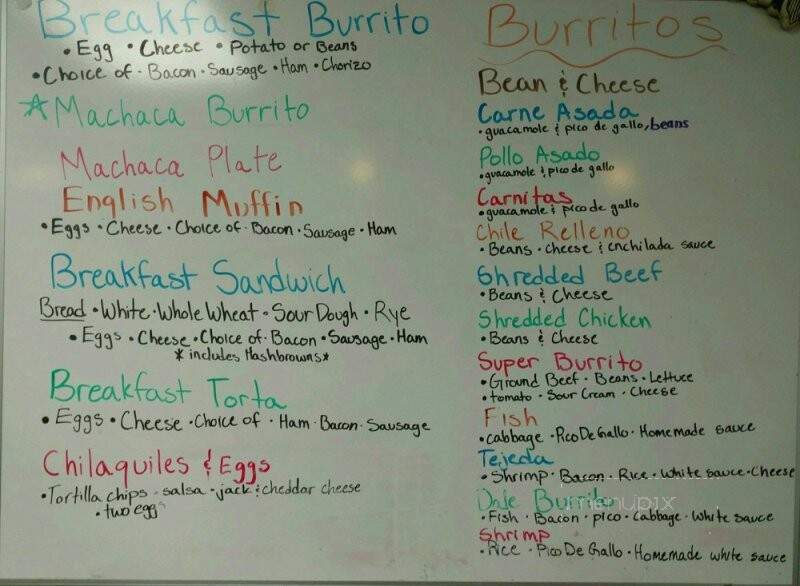 Breakfast Burrito
• Egg • Cheese • Potato or Beans
• Choice of • Bacon • Sausage • Ham • Chorizo
Machaca Burrito
Machaca Plate
English Muffin
• Eggs • Cheese • Choice of • Bacon • Sausage • Ham
Breakfast Sandwich
Bread • White • Whole Wheat • Sour Dough • Rye
• Eggs • Cheese • Choice of • Bacon • Sausage • Ham
* includes Hashbrowns *
Breakfast Torta
• Eggs • Cheese • Choice of • Ham • Bacon • Sausage
Chilaquiles & Eggs
• Tortilla chips • salsa • jack & cheddar cheese
• two eggs
Burritos
Bean & Cheese
Carne Asada
• guacamole & pico de gallo, beans
Pollo Asado
• guacamole & pico de gallo
Carnitas
• guacamole & pico de gallo
Chile Relleno
• Beans • cheese & enchilada sauce
Shredded Beef
• Beans & Cheese
Shredded Chicken
• Beans & Cheese
Super Burrito
• Ground Beef • Beans • Lettuce
• tomato • Sour Cream • Cheese
Fish
• cabbage • Pico De Gallo • Homemade sauce
Tejeda
• Shrimp • Bacon • Rice • White sauce • Cheese
Burrito
menupix
• Fish • Bacon • pico • Cabbage • White sauce
Shrimp
• Rice • Pico De Gallo • Homemade white sauce